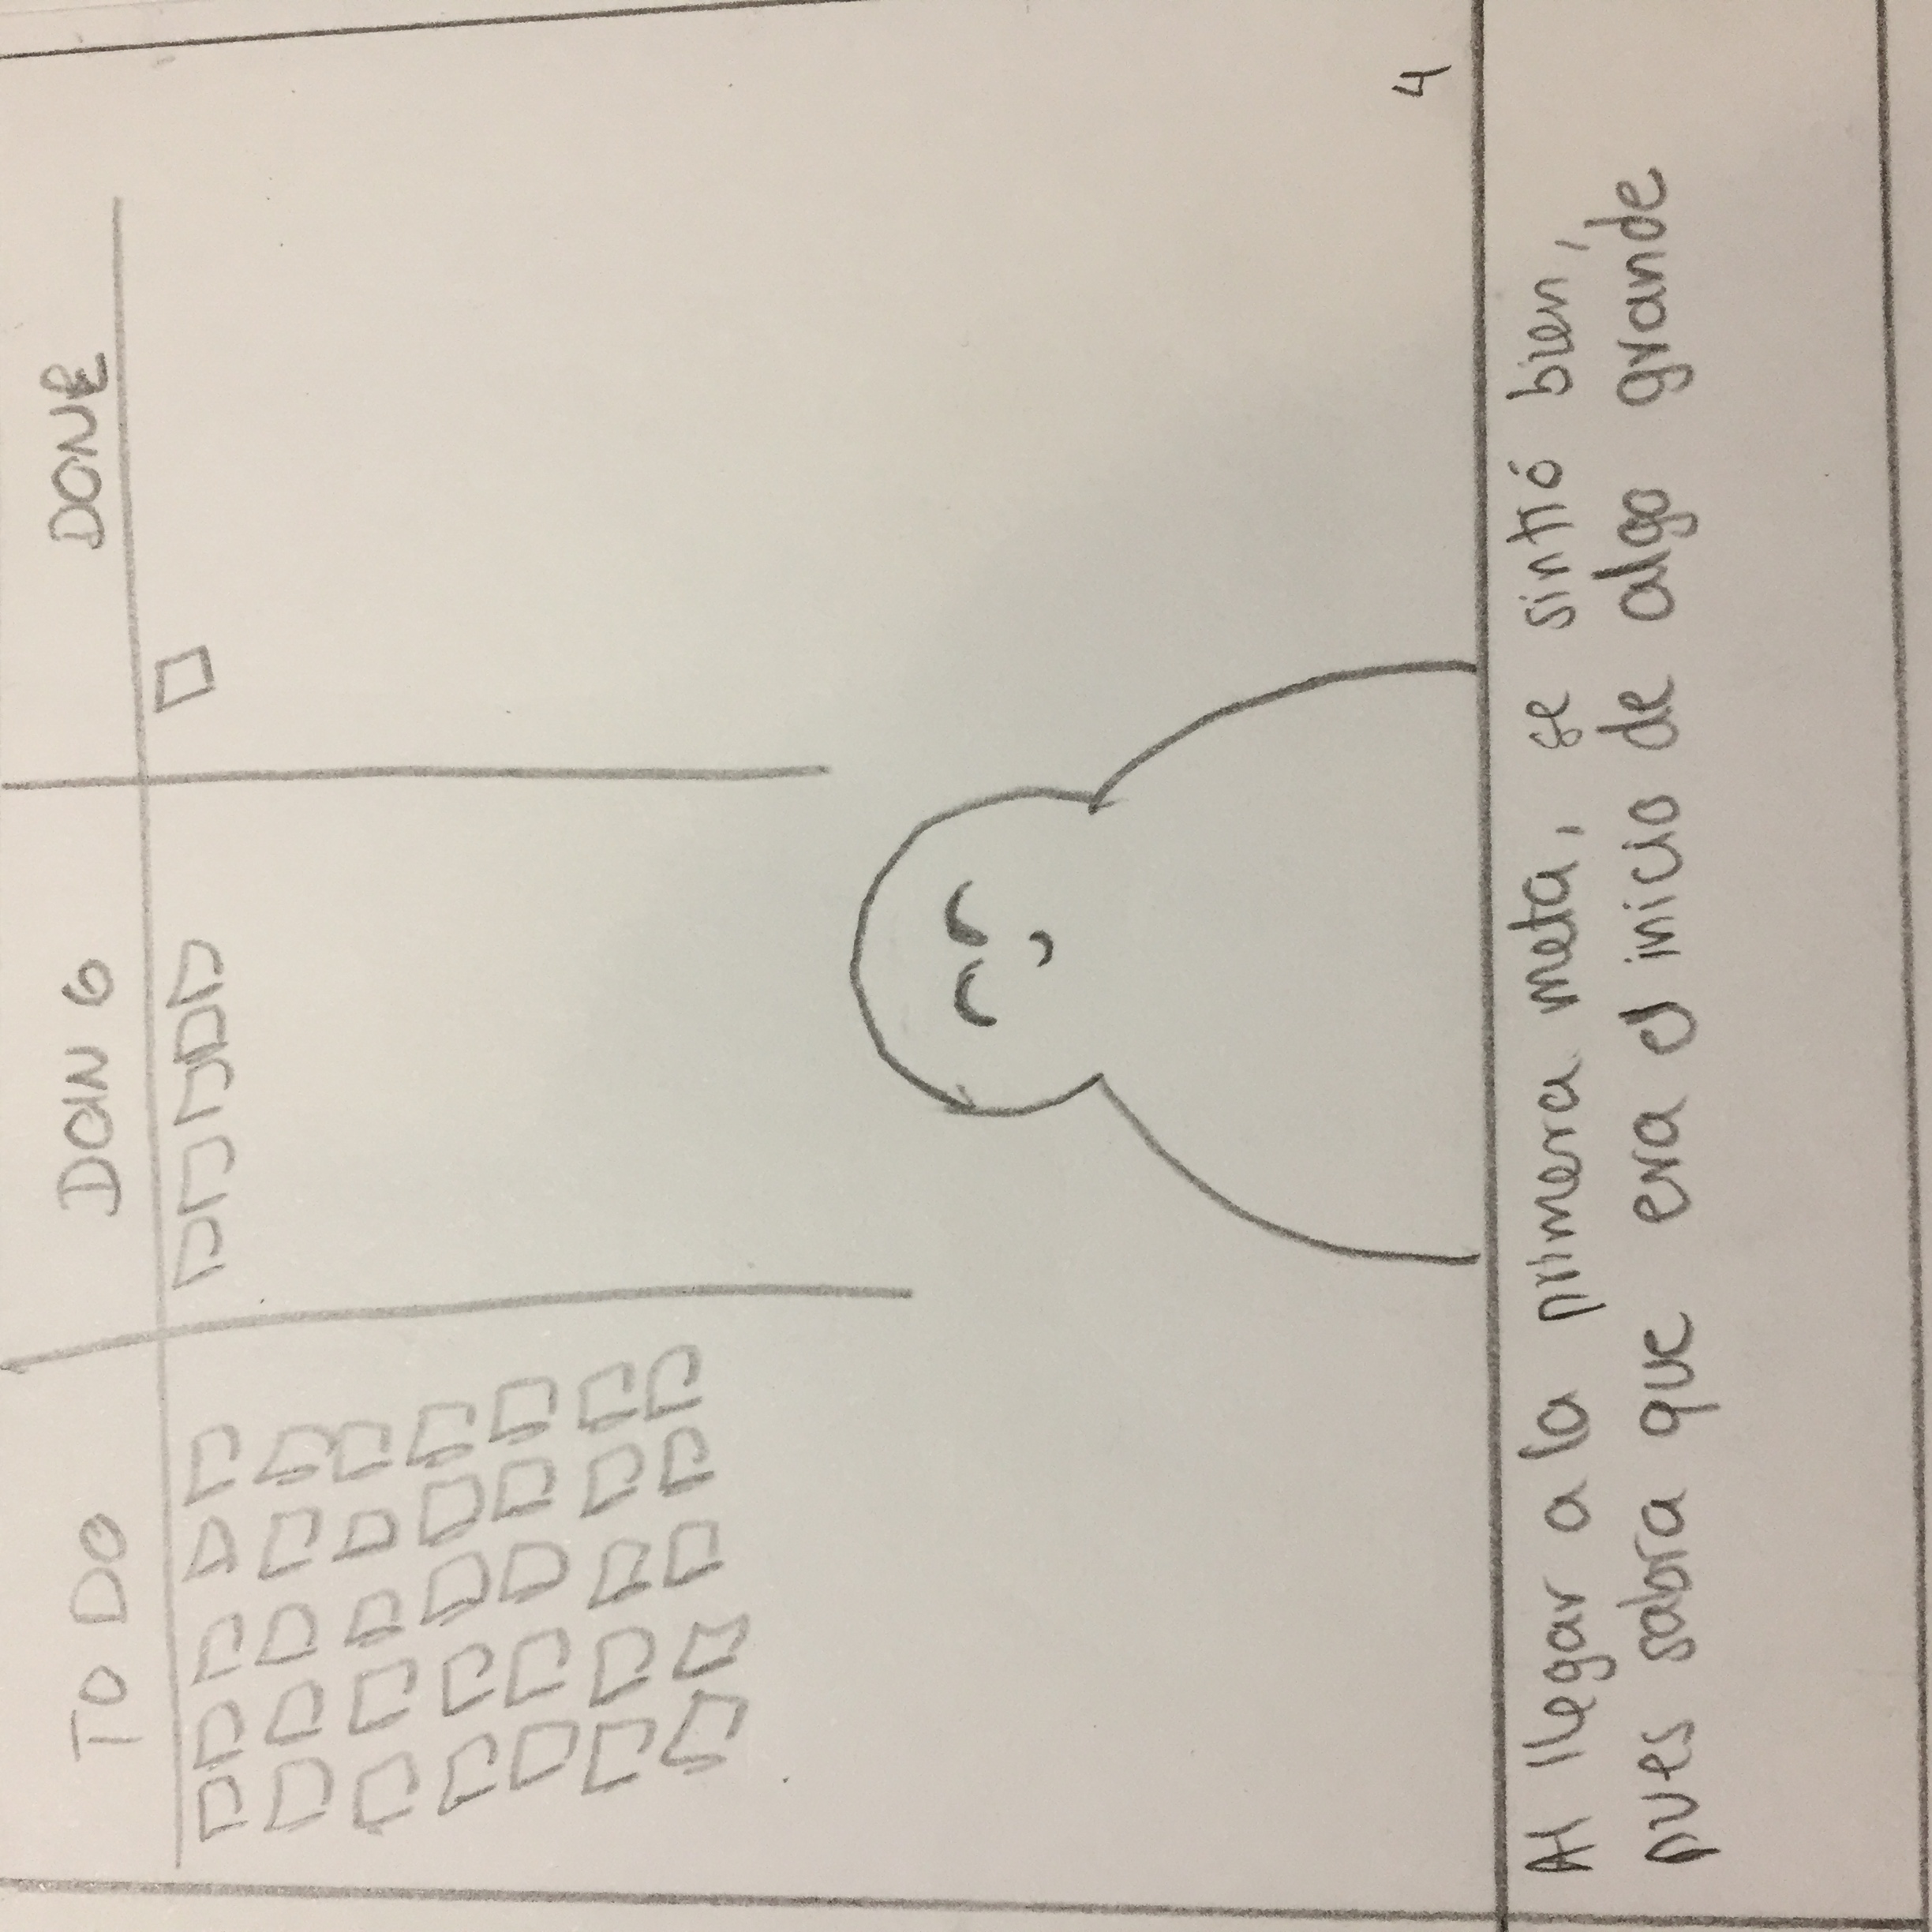 TO DO DOING DONE
4
Al llegar a la primera meta, se sintió bien,
pues sabía que era el inicio de algo grande